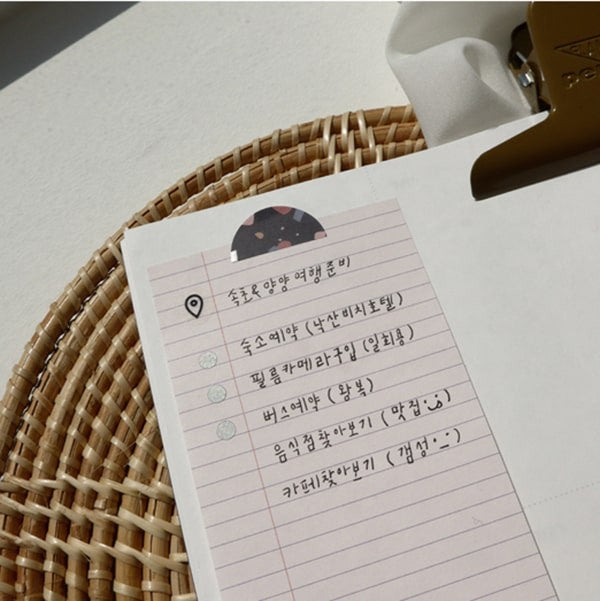 속초&양양 여행준비
숙소예약 (낙산비치호텔)
필름카메라구입 (일회용)
버스예약 (왕복)
음식점찾아보기 (맛집)
카페찾아보기 (갬성)